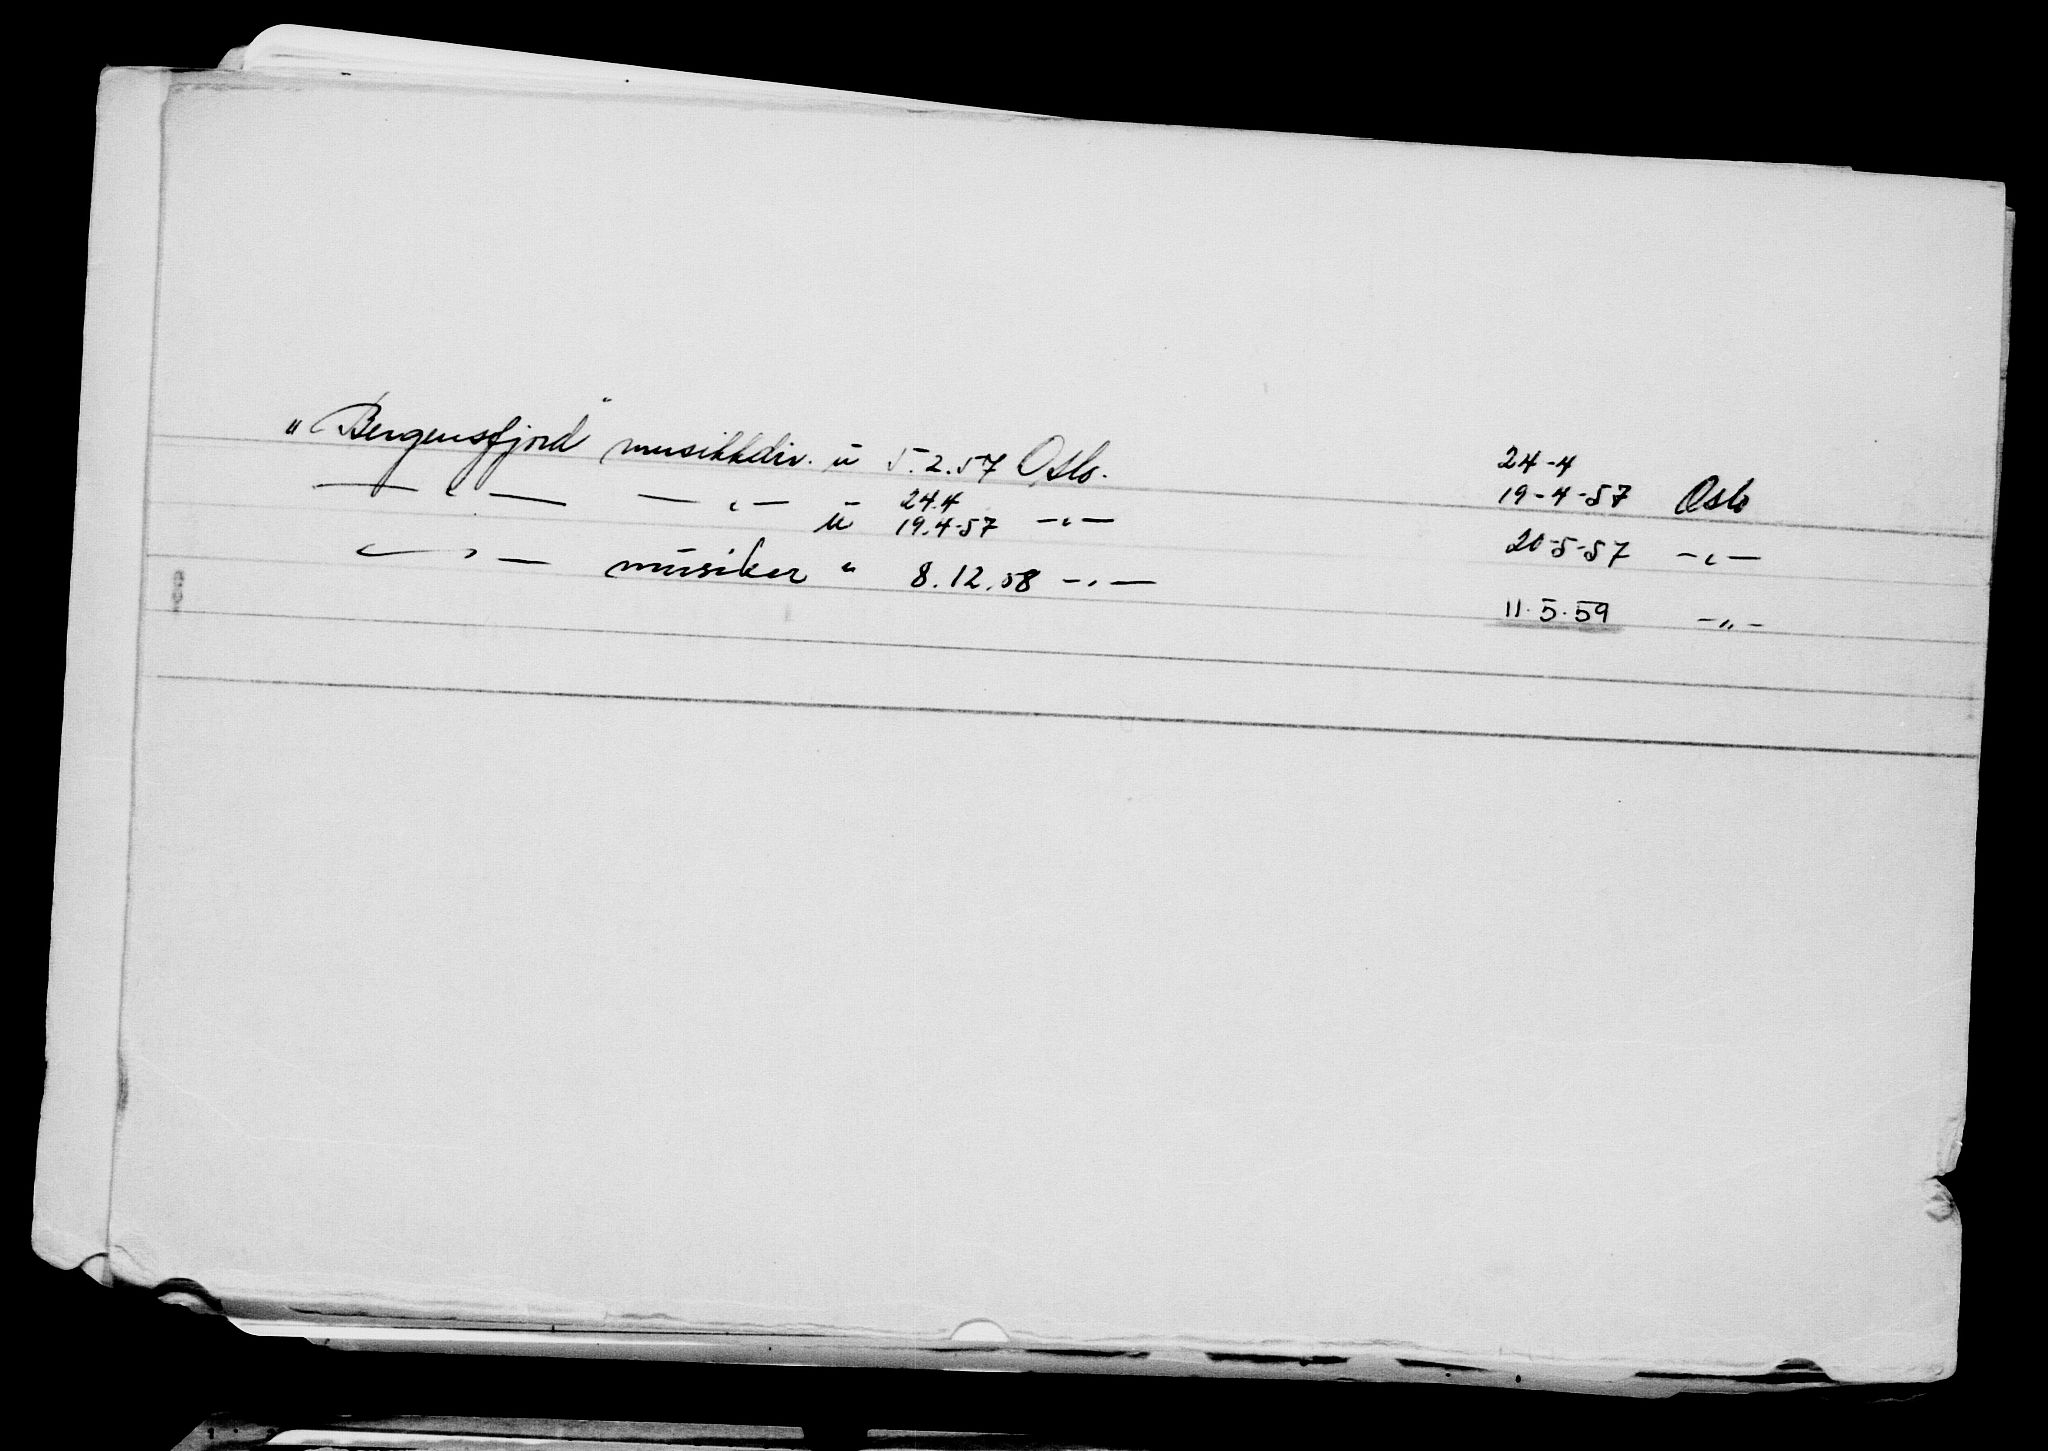 "Bergensfjord" musikkdir. u 5.2.57 Oslo. 24-4
19-4-57 Oslo
— " — — " — u 24.4
19.4-57 — " — 20-5-57 — " —
— " — musiker " 8.12.58 — " — 11.5.59 — " —